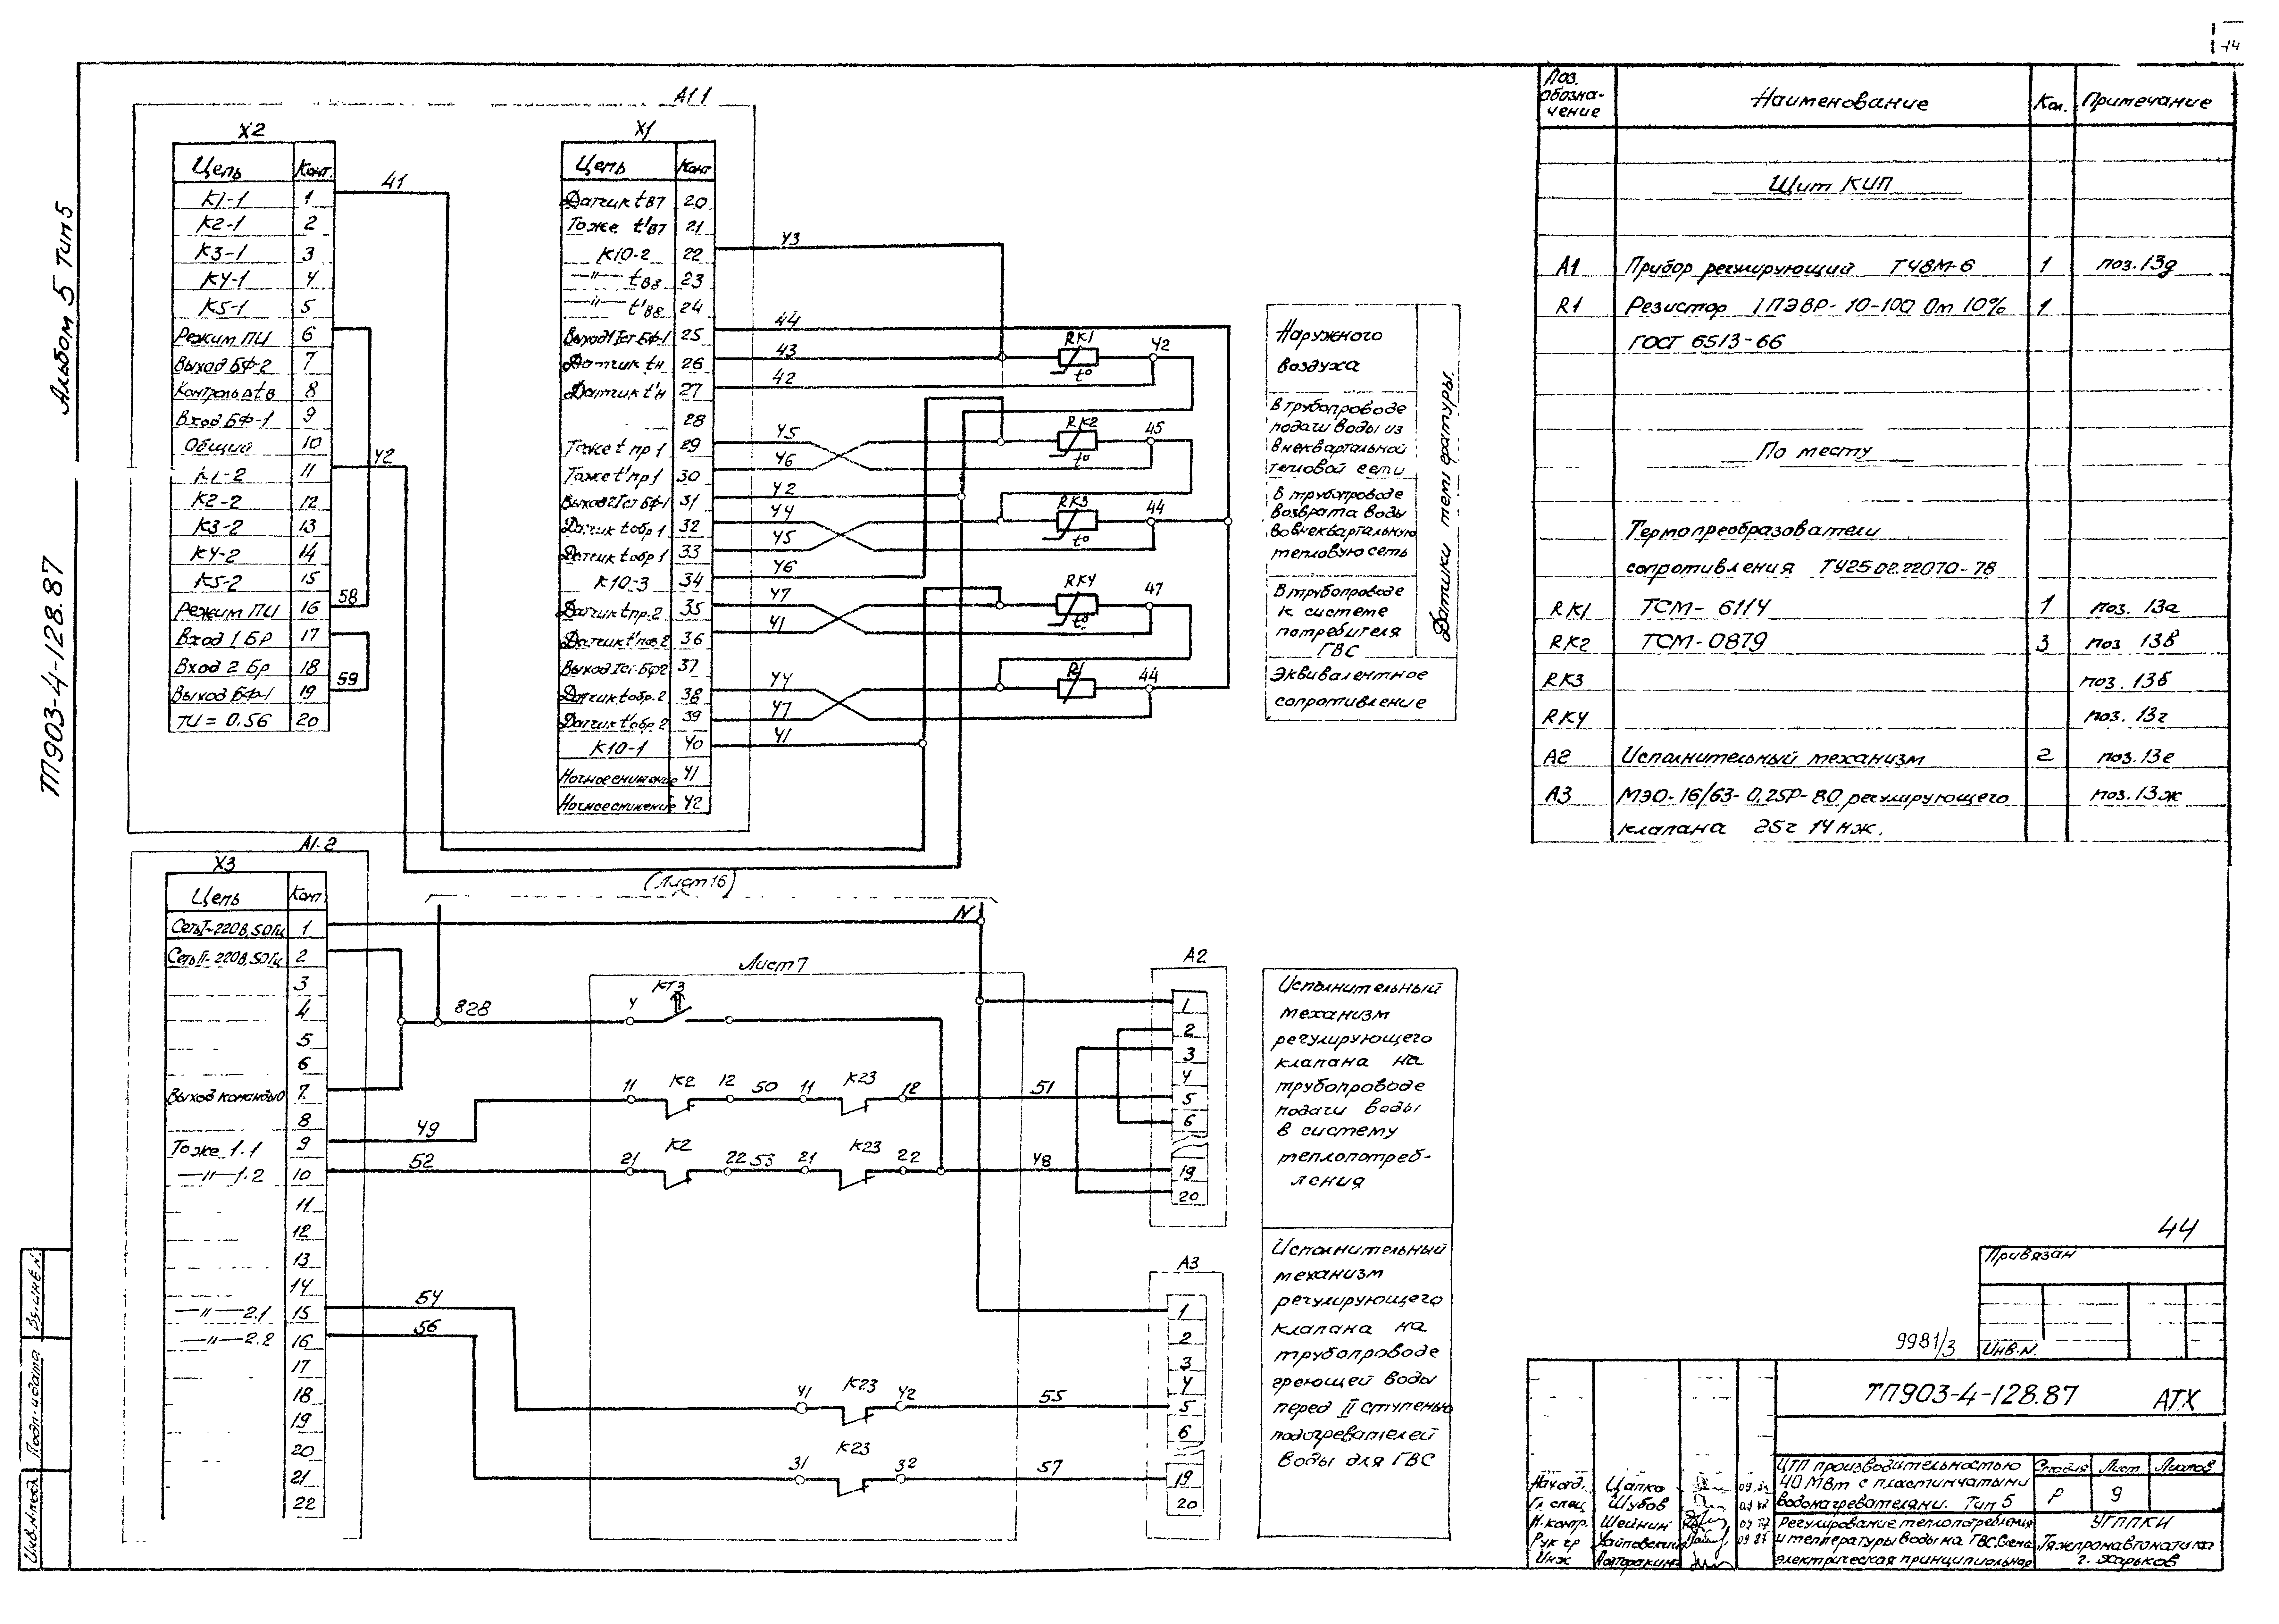 14
Альбом 5 Тип 5
ТП903-4-128.87
А1.1
X2
Цепь Конт.
К1-1 1
К2-1 2
К3-1 3
К4-1 4
К5-1 5
Режим ПИ 6
Выход БФ-2 7
Контроль Δtв 8
Вход БФ-1 9
Общий 10
К1-2 11
К2-2 12
К3-2 13
К4-2 14
К5-2 15
Режим ПИ 16
Вход 1 БР 17
Вход 2 Бр 18
Выход БФ-1 19
ТИ = 0,56 20
41
42
58
59
X1
Цепь Конт
Датчик tв7 20
Тоже t'в7 21
К10-2 22
—"— tв8 23
—"— t'в8 24
Выход 1 Iст БФ-1 25
Датчик tн 26
Датчик t'н 27
28
Тоже t пр1 29
Тоже t' пр1 30
Выход 2 Iст БФ-1 31
Датчик tобр 1 32
Датчик tобр 1 33
К10-3 34
Датчик tпр.2 35
36
37
Датчик tобр.2 38
Датчик t'обр 2 39
К10-1 40
Ночное снижение 41
Ночное снижение 42
43
44
43 RK1 42
42 t°
45 RK2 45
46 t°
42
44 RK3 44
45 t°
46
47 RK4 47
41 t°
44 R1 44
47
41
Наружного
воздуха
В трубопроводе
подачи воды из
внеквартальной
тепловой сети
В трубопроводе
возврата воды
во внеквартальную
тепловую сеть
В трубопроводе
к системе
потребителя
ГВС
Эквивалентное
сопротивление
Датчики температуры.
А1.2
X3
Цепь Конт
Сеть I~220В,50Гц 1
Сеть II~220В,50Гц 2
3
4
5
6
Выход команды 0 7
8
Тоже 1.1 9
—"— 1.2 10
11
12
13
14
—"— 2.1 15
—"— 2.2 16
17
18
19
20
21
22
(Лист 16)
N
828
Лист 7
КТ3
4
49 11 К2 12 50 11 К23 12 51
52 21 К2 22 53 21 К23 22 48
54
56
41 К23 42 55
31 К23 32 57
А2
1
2
3
4
5
6
19
20
А3
1
2
3
4
5
6
19
20
Исполнительный
механизм
регулирующего
клапана на
трубопроводе
подачи воды
в систему
теплопотреб-
ления
Исполнительный
механизм
регулирующего
клапана на
трубопроводе
греющей воды
перед II ступенью
подогревателей
воды для ГВС
Поз. обозна-чение Наименование Кол. Примечание
Щит КИП
А1 Прибор регулирующий Т48М-6 1 поз.13д
R1 Резистор 1ПЭВР-10-100 Ом 10% 1
ГОСТ 6513-66
По месту
Термопреобразователи
сопротивления ТУ25.02.22070-78
RK1 ТСМ-6114 1 поз. 13а
RK2 ТСМ-0879 3 поз 13в
RK3 поз. 13б
RK4 поз. 13г
А2 Исполнительный механизм 2 поз.13е
А3 МЭО-16/63-0,25Р-80 регулирующего поз.13ж
клапана 25ч 14нж.
44
Привязан
Инв.N.
9981/3
ТП903-4-128.87 АТХ
ЦТП производительностью
40 МВт с пластинчатыми
водонагревателями. Тип 5
Стадия Лист Листов
Р 9
Регулирование теплопотребления
и температуры воды на ГВС. Схема
электрическая принципиальная
УГППКИ
Тяжпромавтоматика
г. Харьков
Нач отд. Цапко
Гл спец Шубов
Н.контр. Шейнин
Рук гр
Инж
Вз.инв.N.
Подп. и дата
Инв.N.подл.